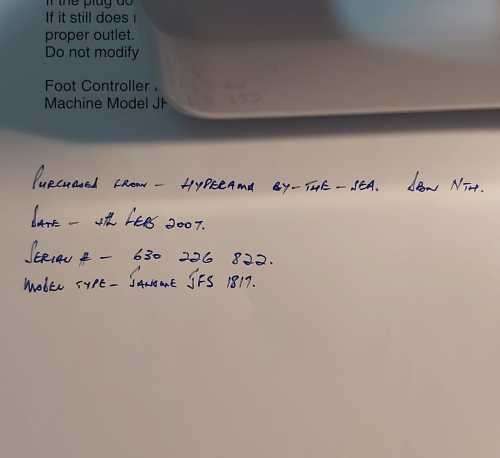 If the plug do
If it still does
proper outlet.
Do not modify
Foot Controller
Machine Model JH
PURCHASED FROM - HYPERAMA BY-THE-SEA. DBN NTH.
DATE - 5th FEB 2007.
SERIAL # - 630 226 822.
MODEL TYPE - JANOME JFS 1817.